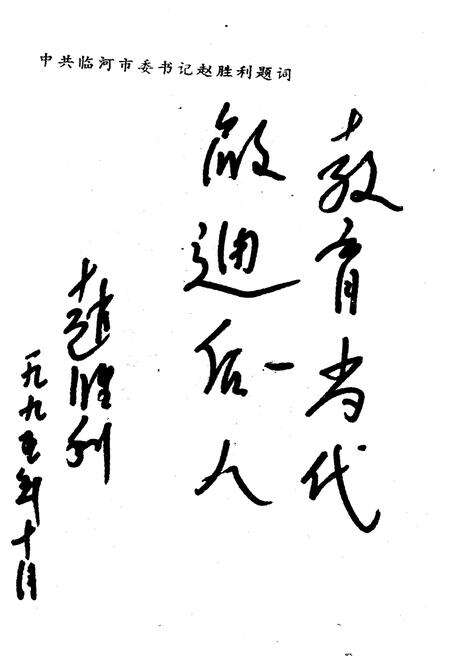 中共临河市委书记赵胜利题词
教育当代
啟迪后人
趙胜利
一九九五年十月